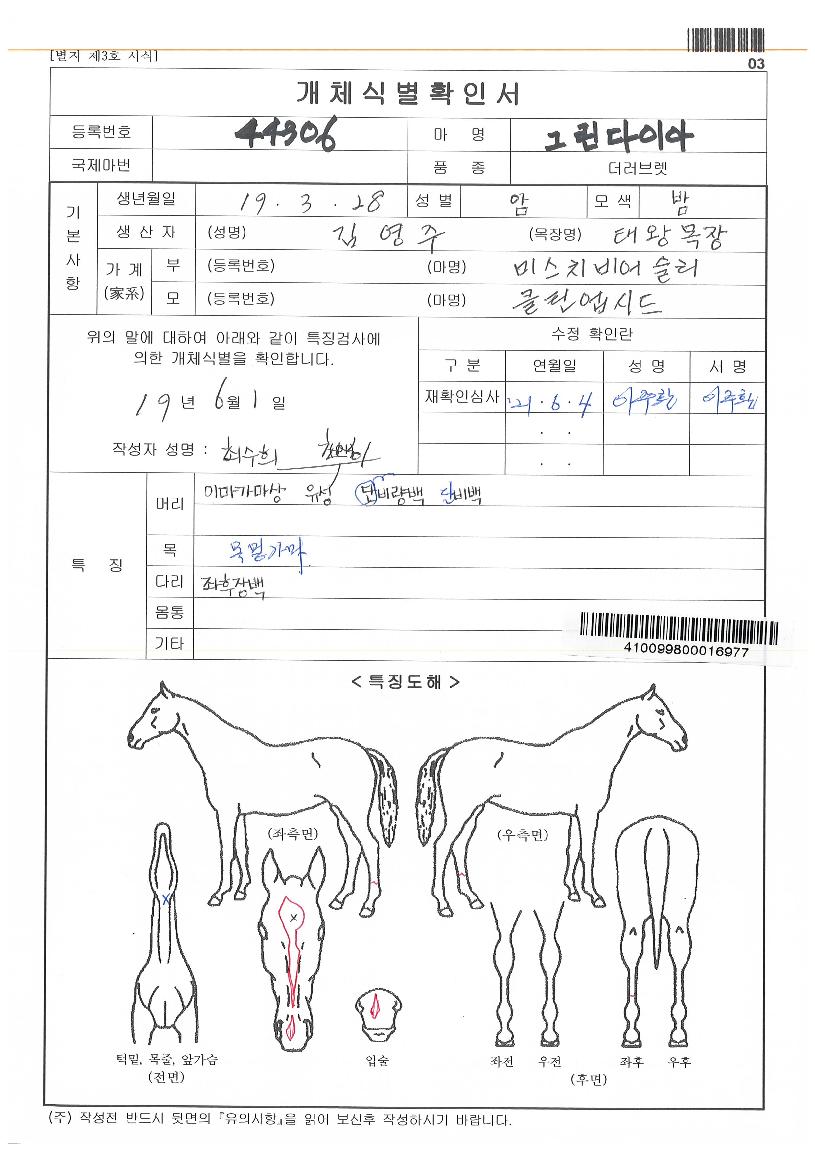 [별지 제3호 서식]
03
개체식별확인서
등록번호 44306 마 명 그린다이아
국제마번 품 종 더러브렛
기본사항
생년월일 19 . 3 . 28 성 별 암 모 색 밤
생 산 자 (성명) 김영주 (목장명) 태왕목장
가 계 (家系)
부 (등록번호) (마명) 미스치비어슬리
모 (등록번호) (마명) 클린엡시드
위의 말에 대하여 아래와 같이 특징검사에
의한 개체식별을 확인합니다.
19 년 6월 1 일
작성자 성명 : 최수희
수정 확인란
구 분 연월일 성 명 시 명
재확인심사 '21 . 6 . 4 이주환 이주환
. .
. .
특 징
머리 이마가마상 유성 비량백 단비백
목 목밑가마
다리 좌후장백
몸통
기타
410099800016977
< 특징도해 >
(좌측면) (우측면)
턱밑, 목줄, 앞가슴
(전면)
입술
좌전 우전 좌후 우후
(후면)
(주) 작성전 반드시 뒷면의 『유의사항』을 읽어 보신후 작성하시기 바랍니다.